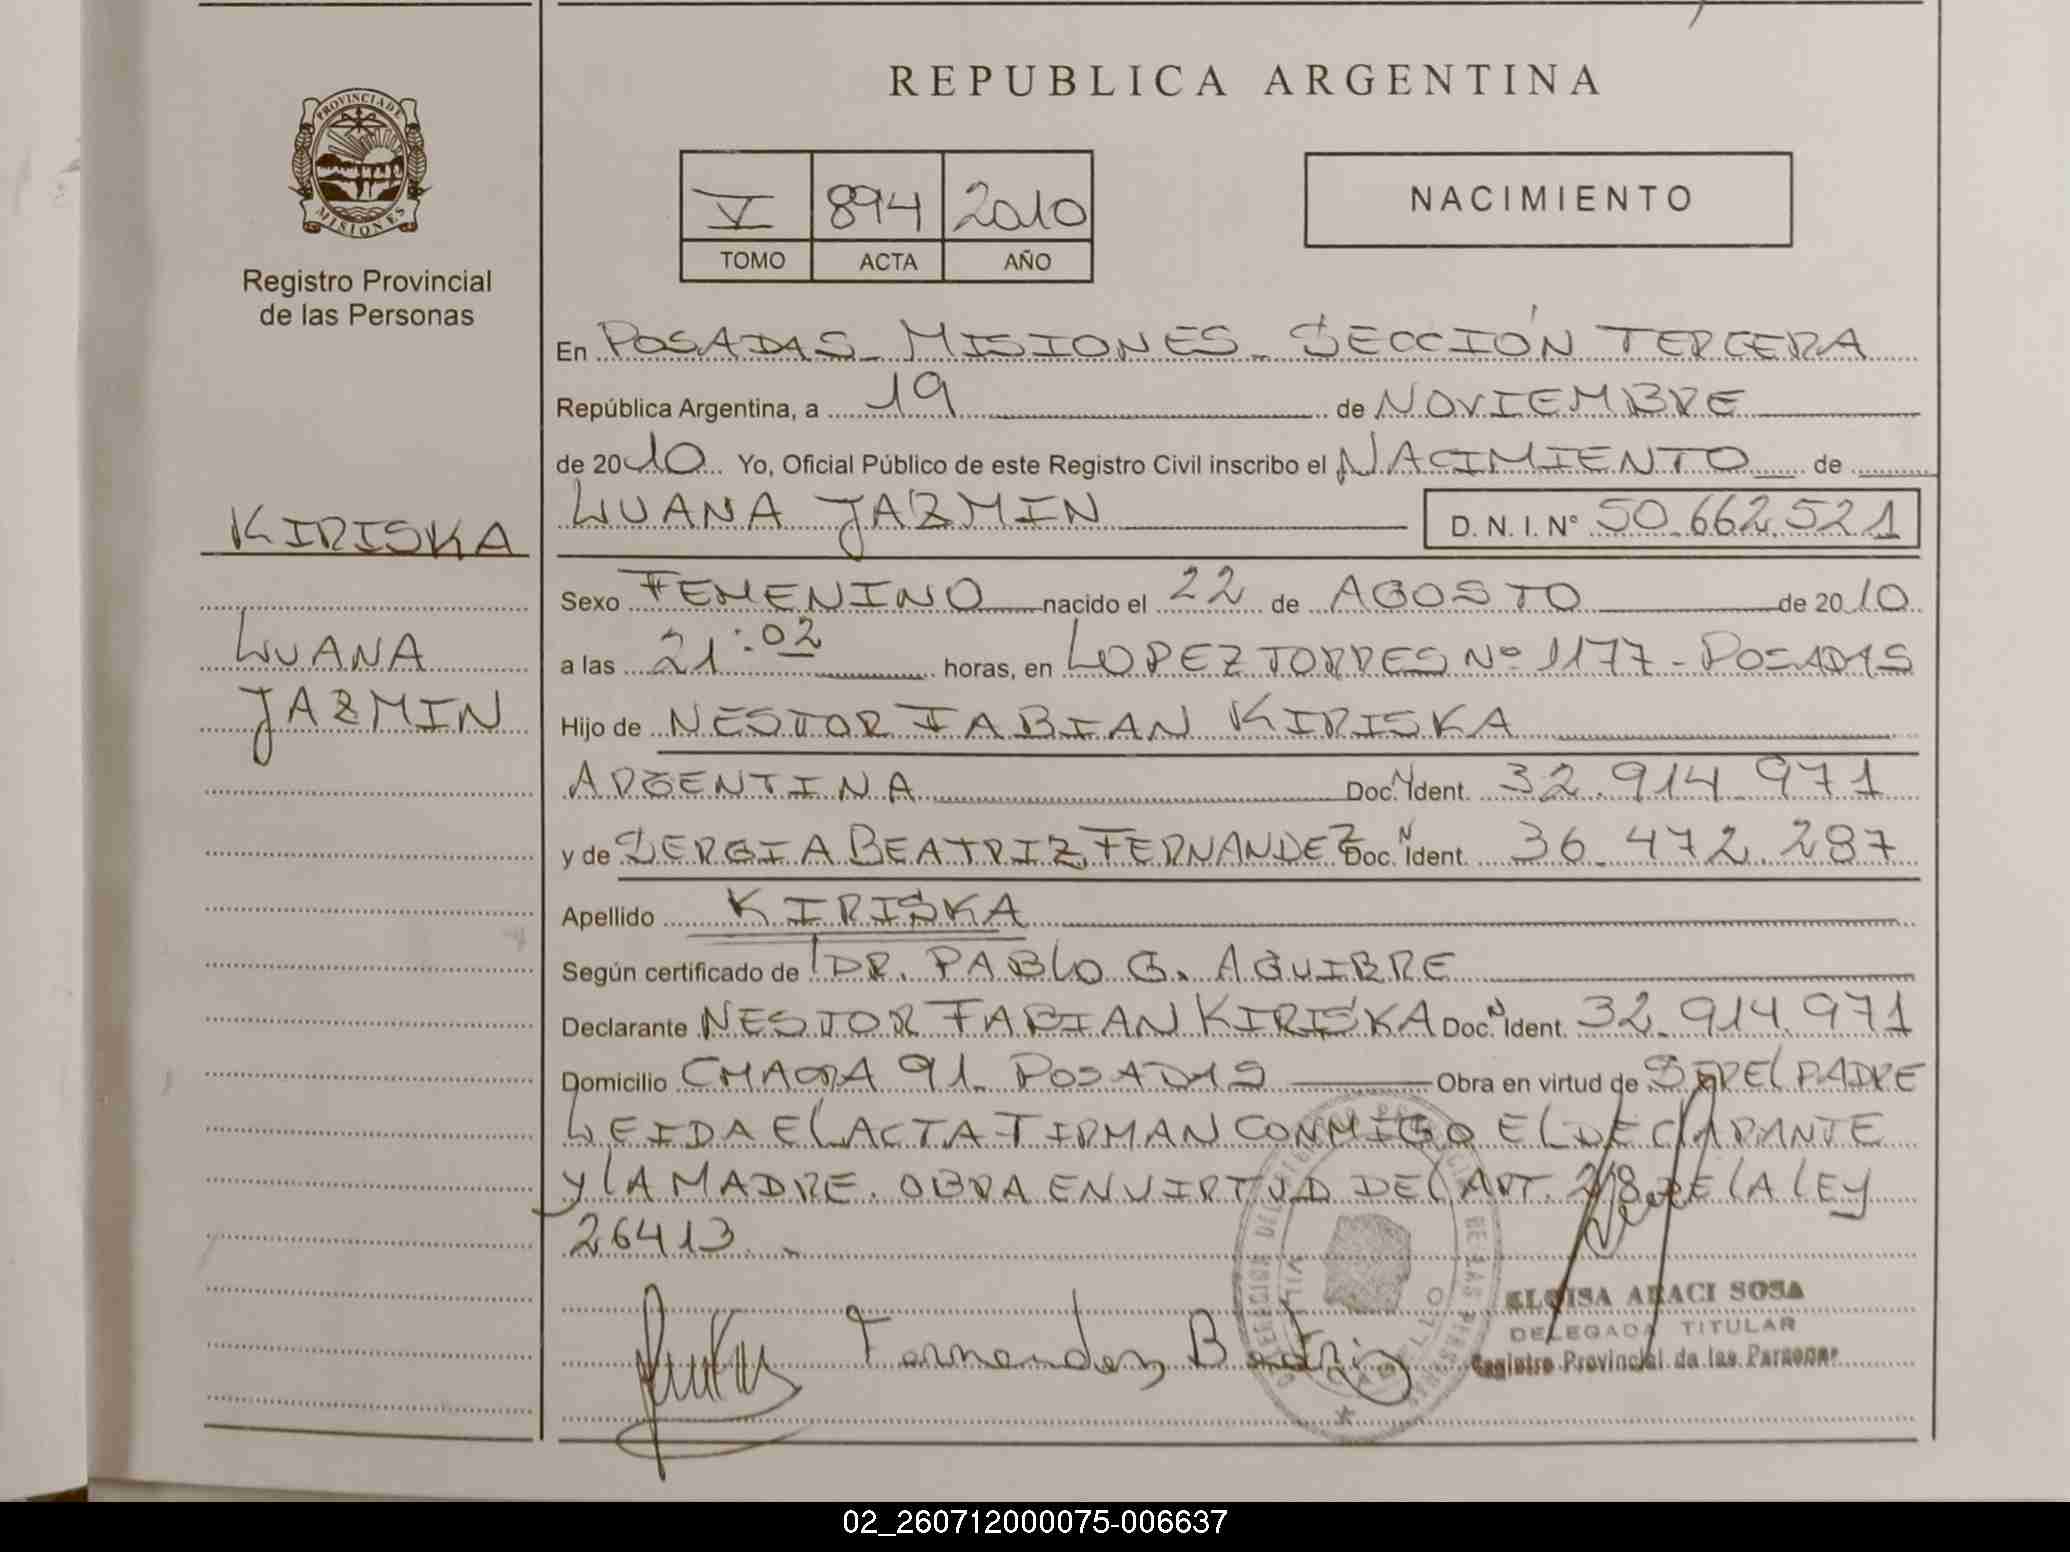 REPUBLICA ARGENTINA
PROVINCIA DE
MISIONES
Registro Provincial
de las Personas
V 894 2010
TOMO ACTA AÑO
NACIMIENTO
En POSADAS - MISIONES - SECCIÓN TERCERA
República Argentina, a 19 de NOVIEMBRE
de 2010 Yo, Oficial Público de este Registro Civil inscribo el NACIMIENTO de
LUANA JAZMIN D. N. I. N° 50.662.521
KIRISKA
LUANA
JAZMIN
Sexo FEMENINO nacido el 22 de AGOSTO de 2010
a las 21:02 horas, en LOPEZ TORRES Nº 1177 - POSADAS
Hijo de NESTOR FABIAN KIRISKA
ARGENTINA Doc. N Ident. 32.914.971
y de SERGIA BEATRIZ FERNANDEZ Doc. N Ident. 36.472.287
Apellido KIRISKA
Según certificado de DR. PABLO G. AGUIRRE
Declarante NESTOR FABIAN KIRISKA Doc. N Ident. 32.914.971
Domicilio CHACRA 91 - POSADAS Obra en virtud de SER EL PADRE
LEIDA EL ACTA FIRMAN CONMIGO EL DECLARANTE
Y LA MADRE. OBRA EN VIRTUD DEL ART. 28 DE LA LEY
26413.
Fernandez Beatriz
ELOISA ARACI SOSA
DELEGADA TITULAR
Registro Provincial de las Personas
02_260712000075-006637